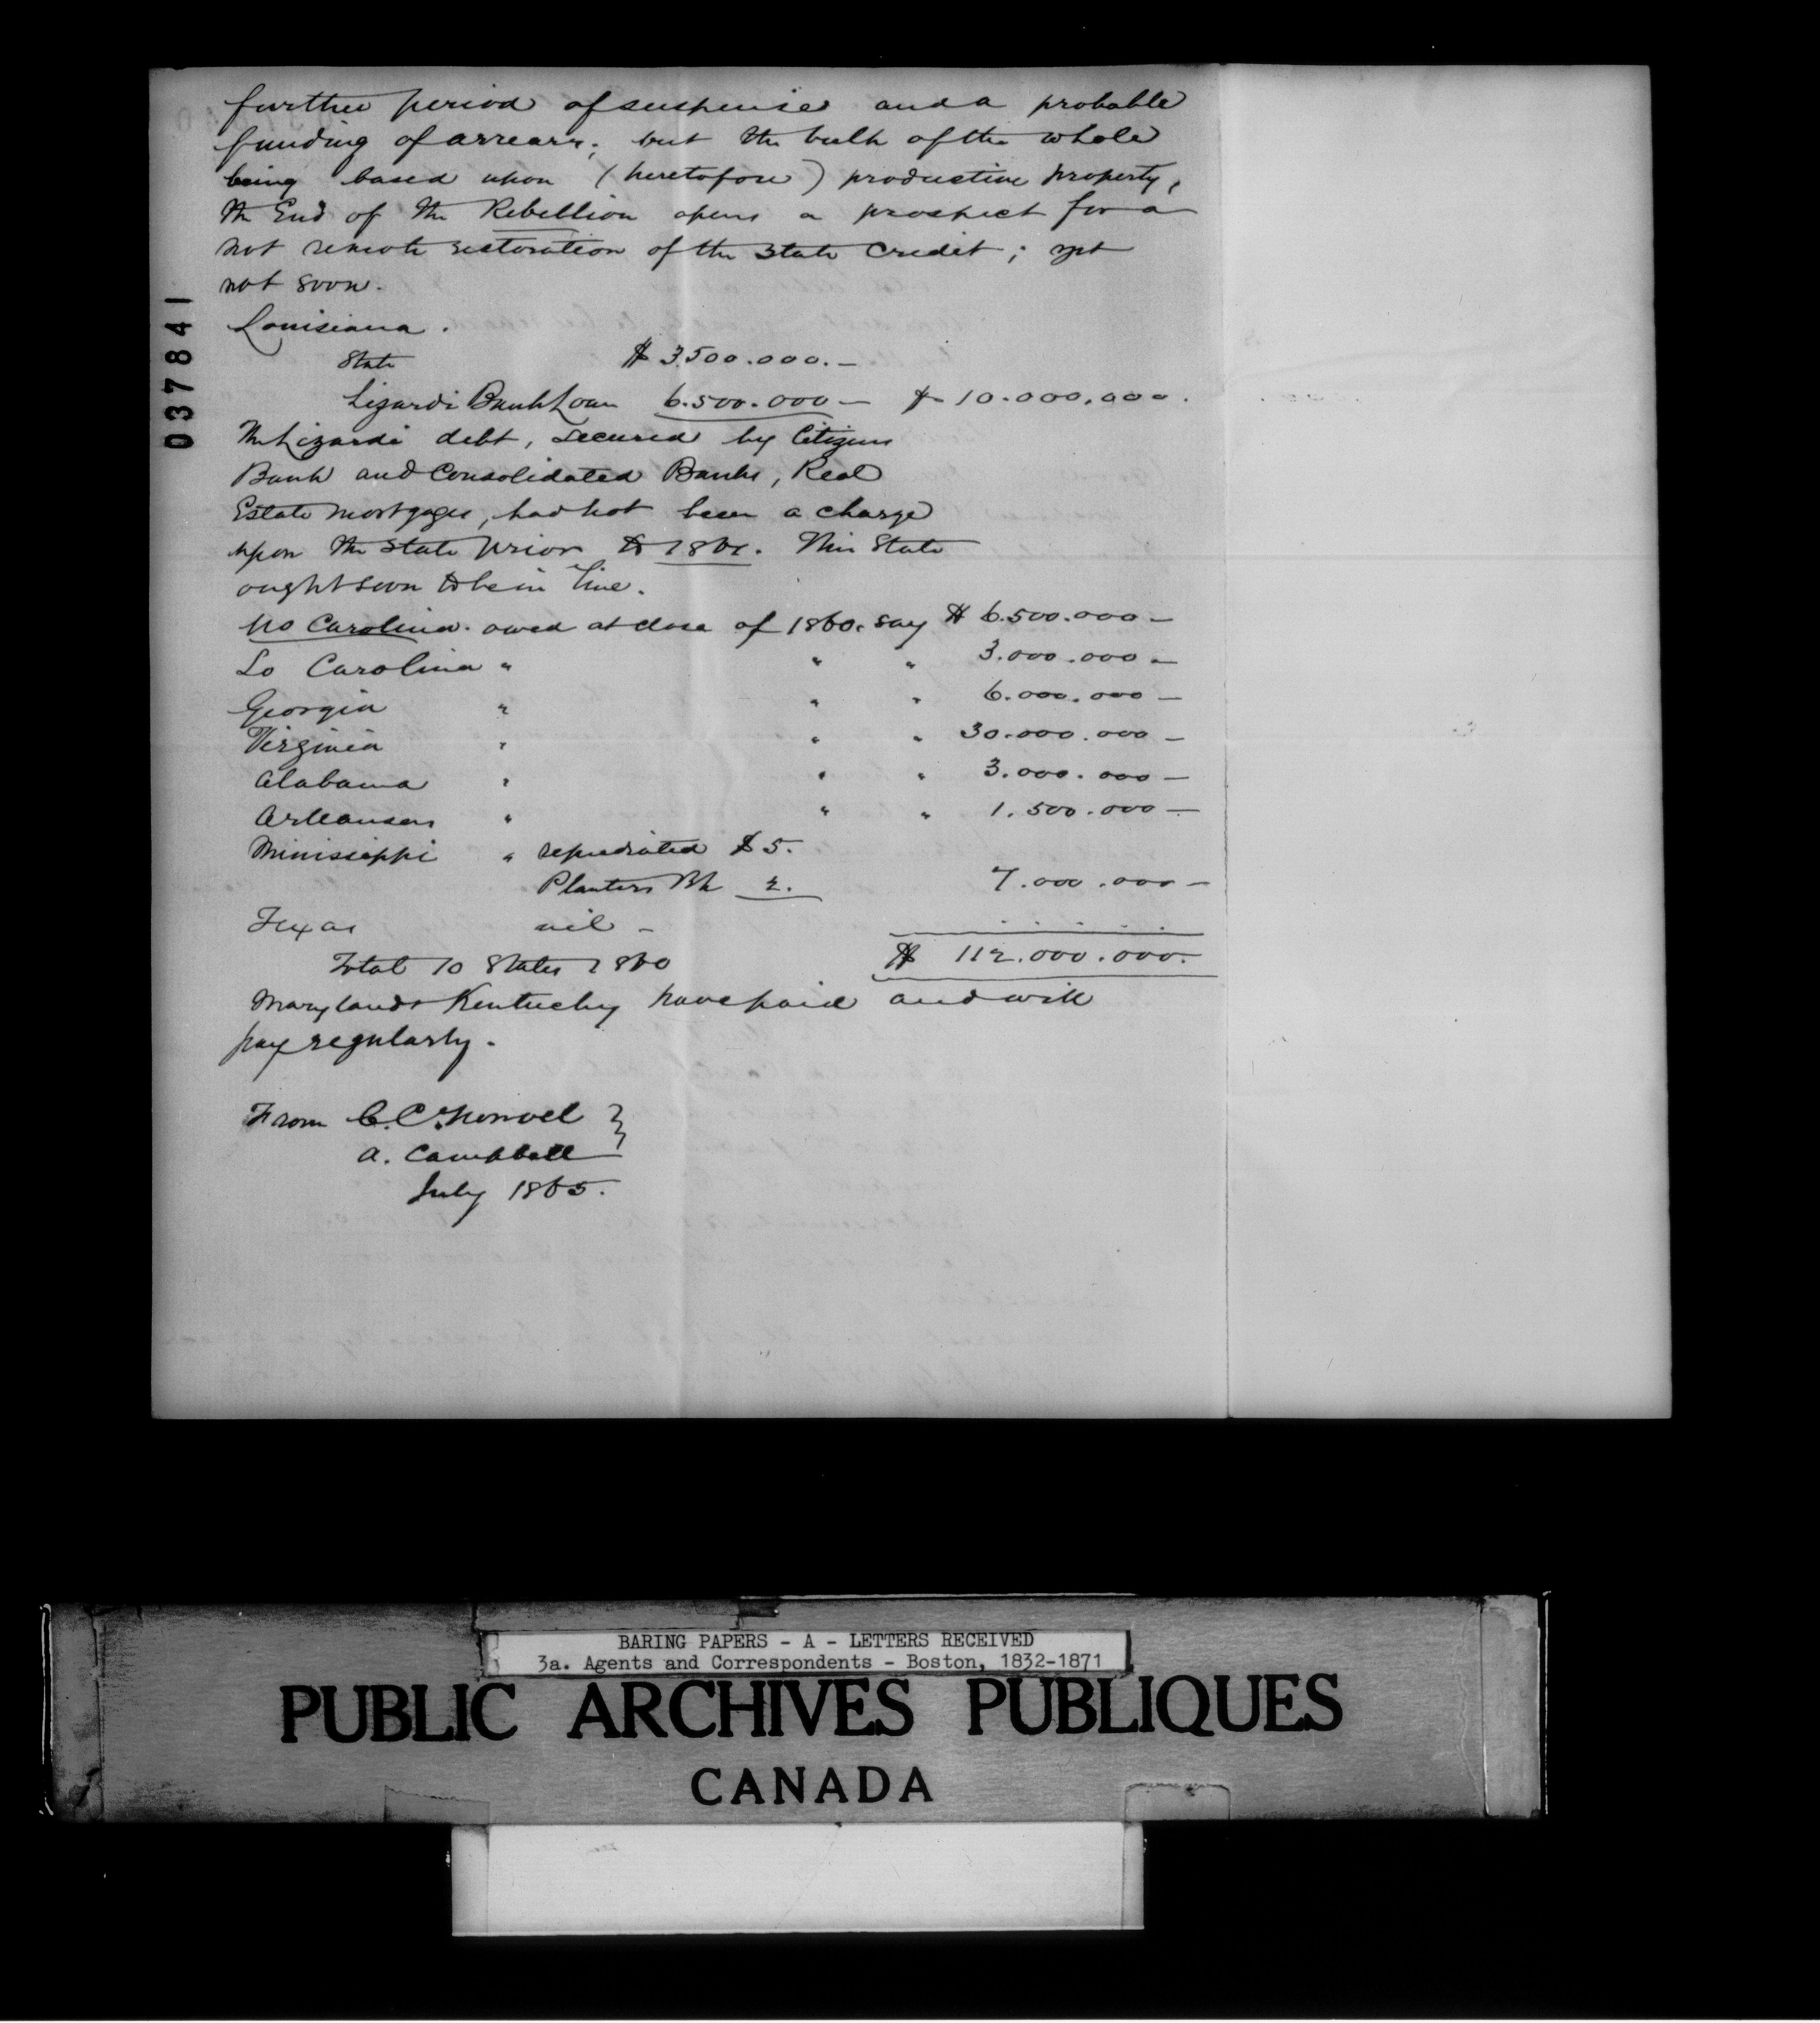 further period of suspense and a probable
funding of arrears; but the bulk of the whole
being based upon (heretofore) productive property,
the End of the Rebellion opens a prospect for a
not remote restoration of the State Credit; yet
not soon.
Louisiana.
State $ 3.500.000.—
Lizardi Bank Loan 6.500.000— $ 10.000.000.
The Lizardi debt, secured by Citizens
Bank and Consolidated Banks, Real
Estate mortgages, had not been a charge
upon the State prior to 1861. This State
ought soon to be in line.
No Carolina. owed at close of 1860. say $ 6.500.000—
So Carolina " " " 3.000.000—
Georgia " " " 6.000.000—
Virginia " " " 30.000.000—
Alabama " " " 3.000.000—
Arkansas " " " 1.500.000—
Mississippi " repudiated $ 5.
Planters Bk 2. 7.000.000—
Texas nil —
Total 10 States 1860 $ 112.000.000.
Maryland & Kentucky have paid and will
pay regularly.
From C. C. Norvel }
A. Campbell
July 1865.
037841
BARING PAPERS - A - LETTERS RECEIVED
3a. Agents and Correspondents - Boston, 1832-1871
PUBLIC ARCHIVES PUBLIQUES
CANADA